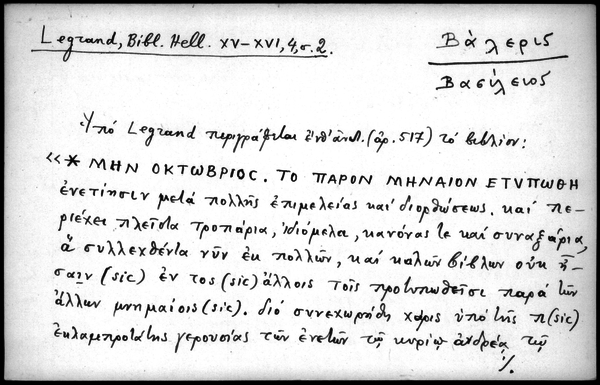 Legrand, Bibl. Hell. XV–XVI, 4, σ. 2.
Βάλερις
Βασίλειος
Ὑπό Legrand περιγράφεται ἐνθ' ἀνωτ. (ἀρ. 517) τό βιβλίον:
«* ΜΗΝ ΟΚΤΩΒΡΙΟΣ. ΤΟ ΠΑΡΟΝ ΜΗΝΑΙΟΝ ΕΤΥΠΩΘΗ
ἐνετίησιν μετά πολλῆς ἐπιμελείας καί διορθώσεως. καί πε-
ριέχει πλεῖστα τροπάρια, ἰδιόμελα, κανόνας τε καί συναξάρια,
ἅ συλλεχθέντα νῦν ἐκ πολλῶν, καί καλῶν βίβλων οὐκ ἦ-
σαιν (sic) ἐν τος (sic) ἄλλοις τοῖς προτυπωθεῖσι παρά τῶν
ἄλλων μνημαίοις (sic). διό συνεχωρήθη χωρις ὑπό τῆς π (sic)
ἐκλαμπροτάτης γερουσίας τῶν ἐνετῶν τῷ κυρίῳ ἀνδρέᾳ τῷ
·/.